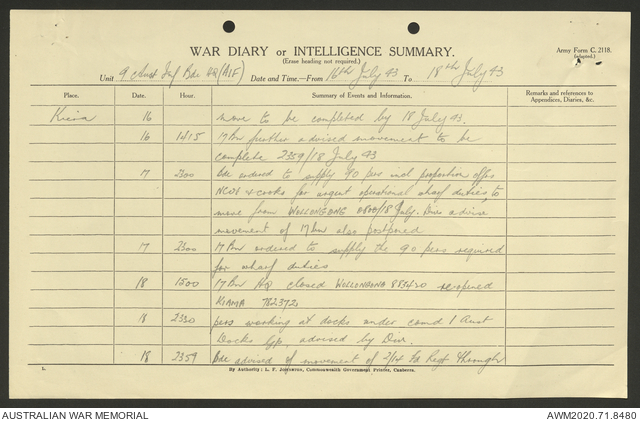 WAR DIARY or INTELLIGENCE SUMMARY.
(Erase heading not required.)
Army Form C. 2118.
(adapted.)
Unit 9 Aust Inf Bde HQ (AIF) Date and Time.—From 16th July 43 To 18th July 43
Place. Date. Hour. Summary of Events and Information. Remarks and references to Appendices, Diaries, &c.
16 move to be completed by 18 July 43.
16 1415 17 Bn further advised movement to be
complete 2359/18 July 43
17 Bde ordered to supply 90 pers incl proportion offrs
NCOs & cooks for urgent operational wharf duties, to
move from WOLLONGONG 0800/18 July. Div advise
movement of 17 Bn also postponed
17 2300 17 Bn ordered to supply the 90 pers required
for wharf duties
18 1500 17 Bn HQ closed WOLLONGONG re-opened
KIAMA 782372
18 2330 pers working at docks under comd 1 Aust
Docks Gp advised by Div.
18 2359 Bde advised of movement of 2/14 Fd Regt through
1.
By Authority: L. F. Johnston, Commonwealth Government Printer, Canberra.
AUSTRALIAN WAR MEMORIAL
AWM2020.71.8480